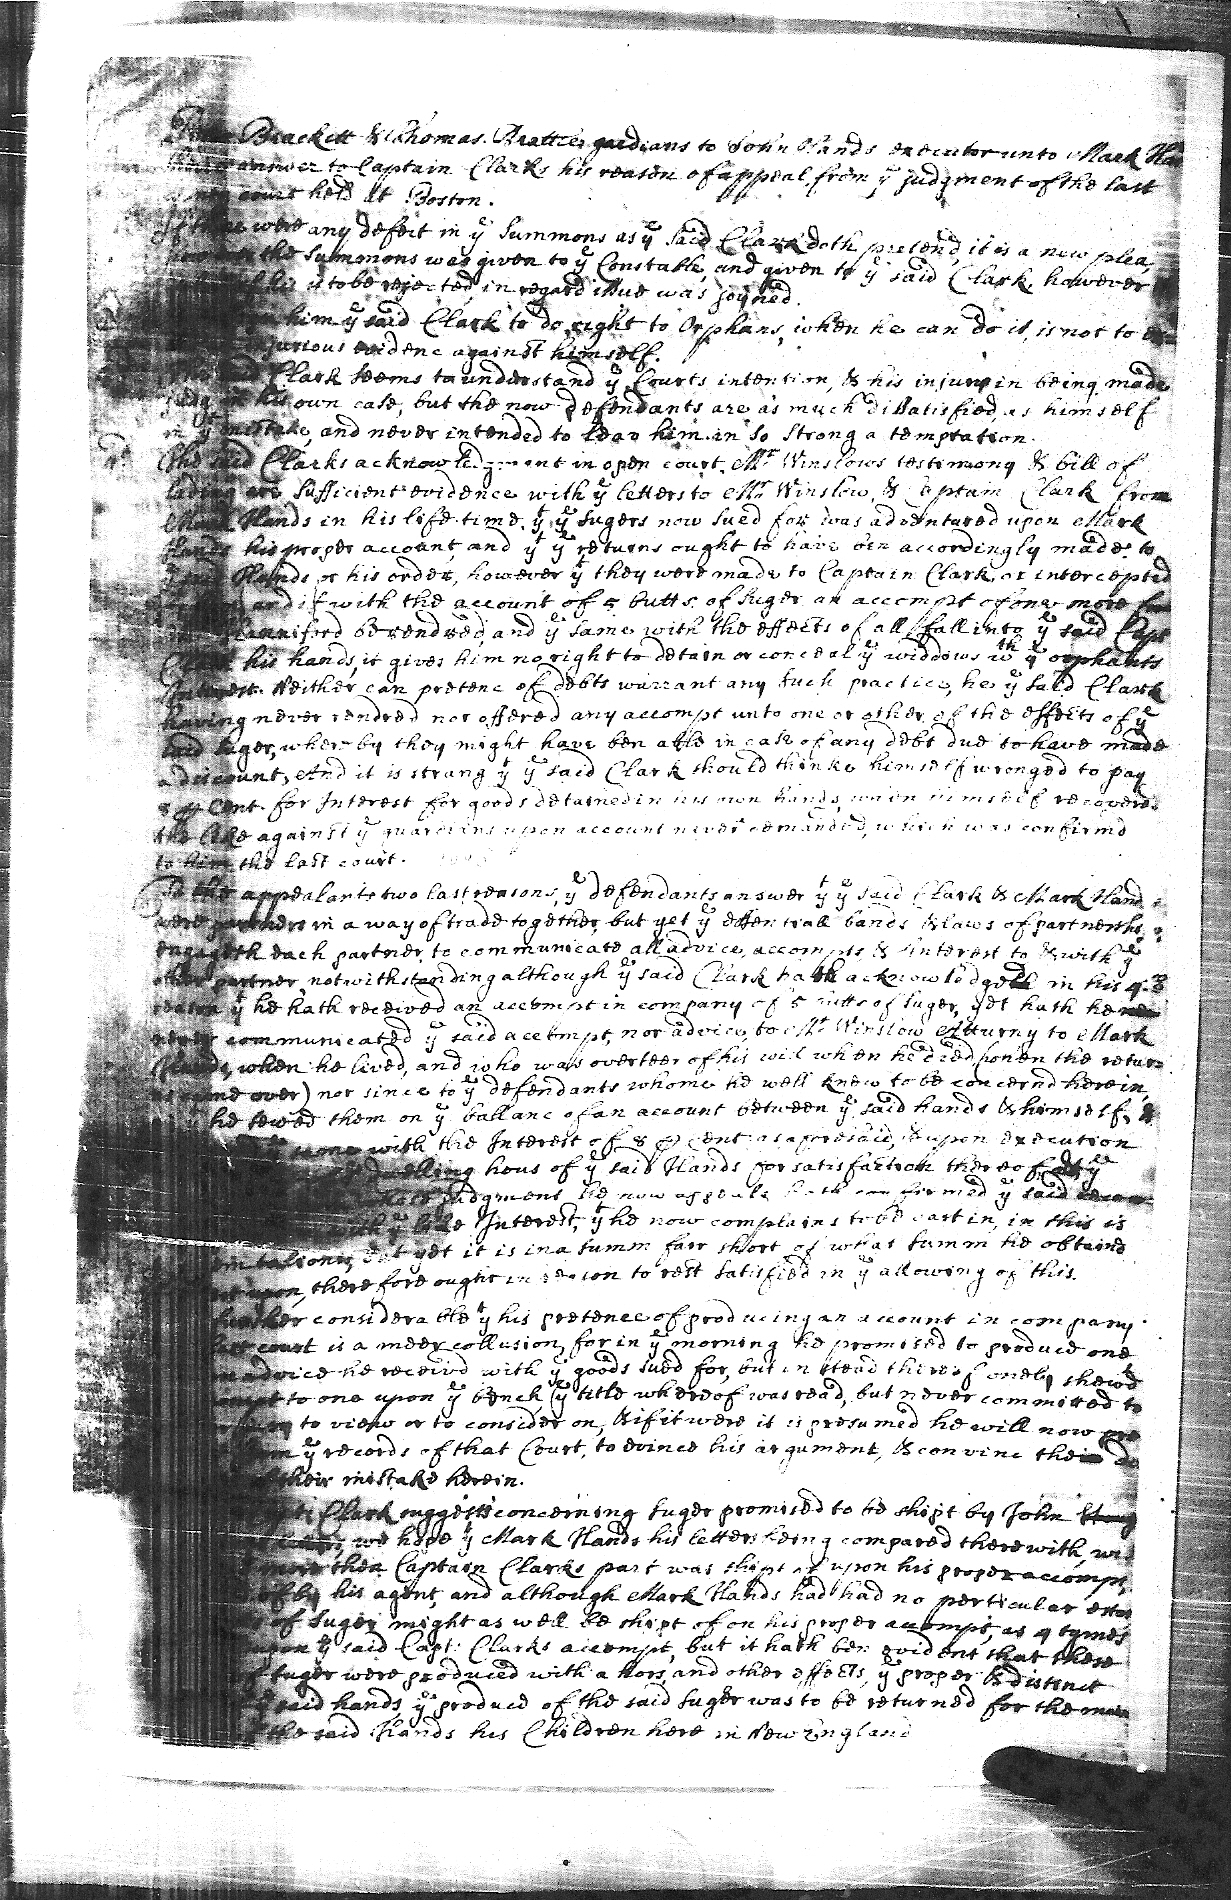 Brackett & Thomas Brattle gardians to John Hands executor unto Mark Han
answer to Captain Clarks his reason of appeal from yᵉ judgment of the last
court held at Boston.
If there were any defect in yᵉ Summons as yᵉ said Clark doth pretend, it is a new plea,
the Summons was given to yᵉ Constable, and given to yᵉ said Clark, however
is to be rejected, in regard issue was joyned.
him yᵉ said Clark to do right to Orphans, when he can do it, is not to be
injurious evidenc against himself.
Clark seems to understand yᵉ Courts intention, & his injury in being made
judg in his own case, but the now defendants are as much dissatisfied as himself
in yᵗ mistake, and never intended to leav him in so strong a temptation.
The said Clarks acknowledgment in open court, Mʳ Winslows testimony & bill of
lading are sufficient evidence with yᵉ letters to Mʳ Winslow, & Captain Clark from
Mark Hands in his life time, yᵗ yᵉ sugers now sued for was adventured upon Mark
Hands his proper account, and yᵗ yᵉ returns ought to have ben accordingly made to
yᵉ said Hands or his order, however yᵗ they were made to Captain Clark, or intercepted
and if with the account of 5 butts of suger an accompt of one more from
Hanniford be rendred, and yᵉ same with the effects of all fall into yᵉ said Capt
Clark his hands, it gives him no right to detain or conceal yᵉ widdows wᵗʰ yᵉ orphants
Interest. Neither can pretenc of debts warrant any such practice, he yᵉ said Clark
having never rendred nor offered any accompt unto one or other of the effects of yᵉ
said suger, wherby they might have ben able in case of any debt due to have made
a discount, And it is strang yᵗ yᵉ said Clark should thinke himself wronged to pay
8 ꝑ Cent. for Interest for goods detained in his own hands, when himself recovered
the like against yᵉ guardians upon account never demanded, which was confirmd
to him the last court.
To the appealants two last reasons, yᵉ defendants answer yᵗ yᵉ said Clark & Mark Hands
were partners in a way of trade together, but yet yᵉ essentiall bands & laws of partnership
engageth each partner, to communicate all advice, accompts & interest to & with yᵉ
other partner, notwithstanding although yᵉ said Clark hath acknowledgeth in his 4ᵗʰ
reason yᵗ he hath received an accompt in company of 5 butts of suger, yet hath he
never communicated yᵉ said accompt, nor advice, to Mʳ Winslow Atturny to Mark
Hands, when he lived, and who was overseer of his will when he died (when the return
came over) nor since to yᵉ defendants whome he well knew to be concernd herein,
he sewed them on yᵉ ballanc of an account between yᵉ said hands & himself, &
with the Interest of 8 ꝑ Cent: as aforesaid, & upon execution
dwelling hous of yᵉ said Hands for satisfaction thereof, & yᵗ yᵉ
judgment he now appeals hath confirmed yᵉ said
yᵉ like Interest, yᵗ he now complains to be cast in, in this is
but yet it is in a summ farr short of what summ he obtaind
upon, therefore ought in reason to rest satisfied in yᵉ allowing of this.
further considerable yᵗ his pretence of producing an account in company
last court is a meer collusion, for in yᵉ morning he promised to produce one
advice he receivd with yᵉ goods sued for, but in stead thereof onely shewd
to one upon yᵉ bench (yᵉ title whereof was read, but never committed to
to view or to consider on, & if it were it is presumed he will now
yᵉ records of that Court, to evince his argument, & convinc the
their mistake herein.
Clark suggests concerning suger promised to be shipt by John
we hope yᵗ Mark Hands his letters being compared therewith, wil
more then Captain Clarks part was shipt of upon his proper accompt,
of by his agent, and although Mark Hands had had no perticular estate
of suger might as well be shipt of on his proper accompt, as 4 tymes
upon yᵉ said Capt: Clarks accompt, but it hath ben evident that these
suger were produced with a hors, and other effects, yᵉ proper & distinct
said hands, yᵉ produce of the said suger was to be returned for the main
the said Hands his Children here in New England